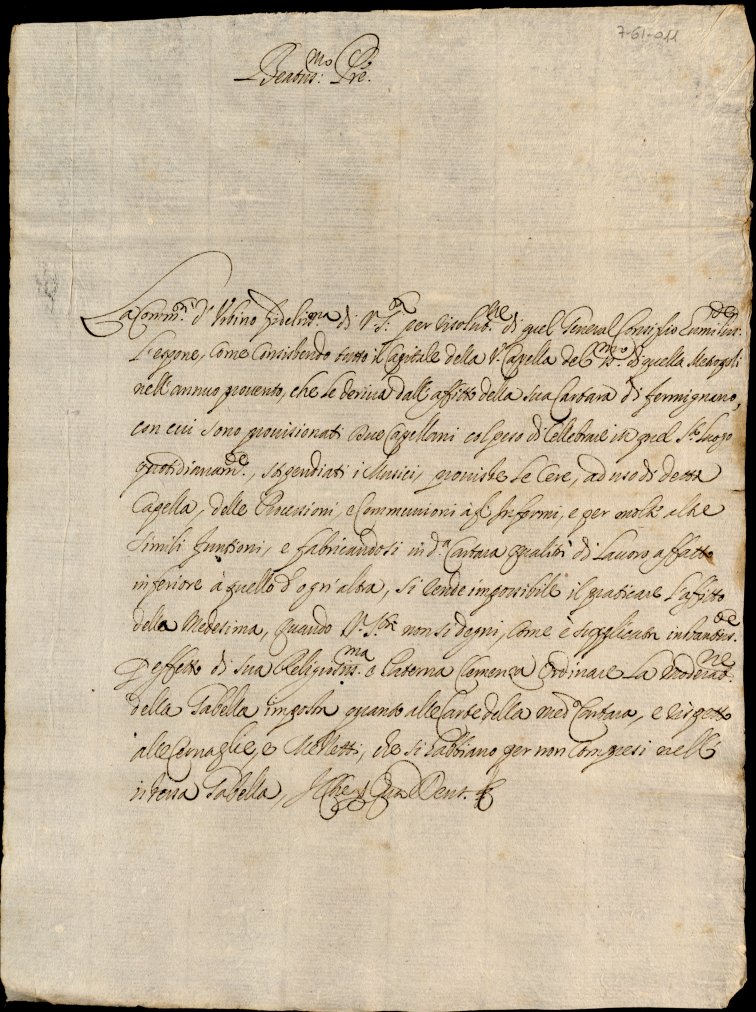 7-61-011
Beatiss:mo Pre.
La Comm.tà d'Urbino fidelis.ma di V.ra S.: per risolut.ne di quel General Conseglio humiliss:te
L'espone, come consistendo tutto il Capitale della V. Capella del S.mo di quella Metropoli
nell'annuo provento, che le deriva dall'affitto della sua Cartara di fermignano,
con cui sono provisionati due Capellani col peso di Cellebrare in quel S.to luogo
quotidianam.te, stipendiati i Musici, proviste le Cere, ad uso di detta
Capella, delle Processioni, e Communioni à gl'Infermi, e per molte altre
simili funtioni, e fabricandosi in d.a Cartara qualità di lavoro affatto
inferiore à quello d'ogn'altra, si rende impossibile il praticare l'affitto
della Medesima, quando V. S.tà non si degni, come è supplicata instantiss.te
p effetto di sua Religiosiss.ma e Paterna Clemenza Ordinare la moderat.ne
della Tabella imposta quando alle Carte della med.a Cartara, e rispetto
alle Cernaglie, e Mezzetti, che si habbiano per non Compresi nell'
istessa Tabella, Il che &c Quam Deus. &c